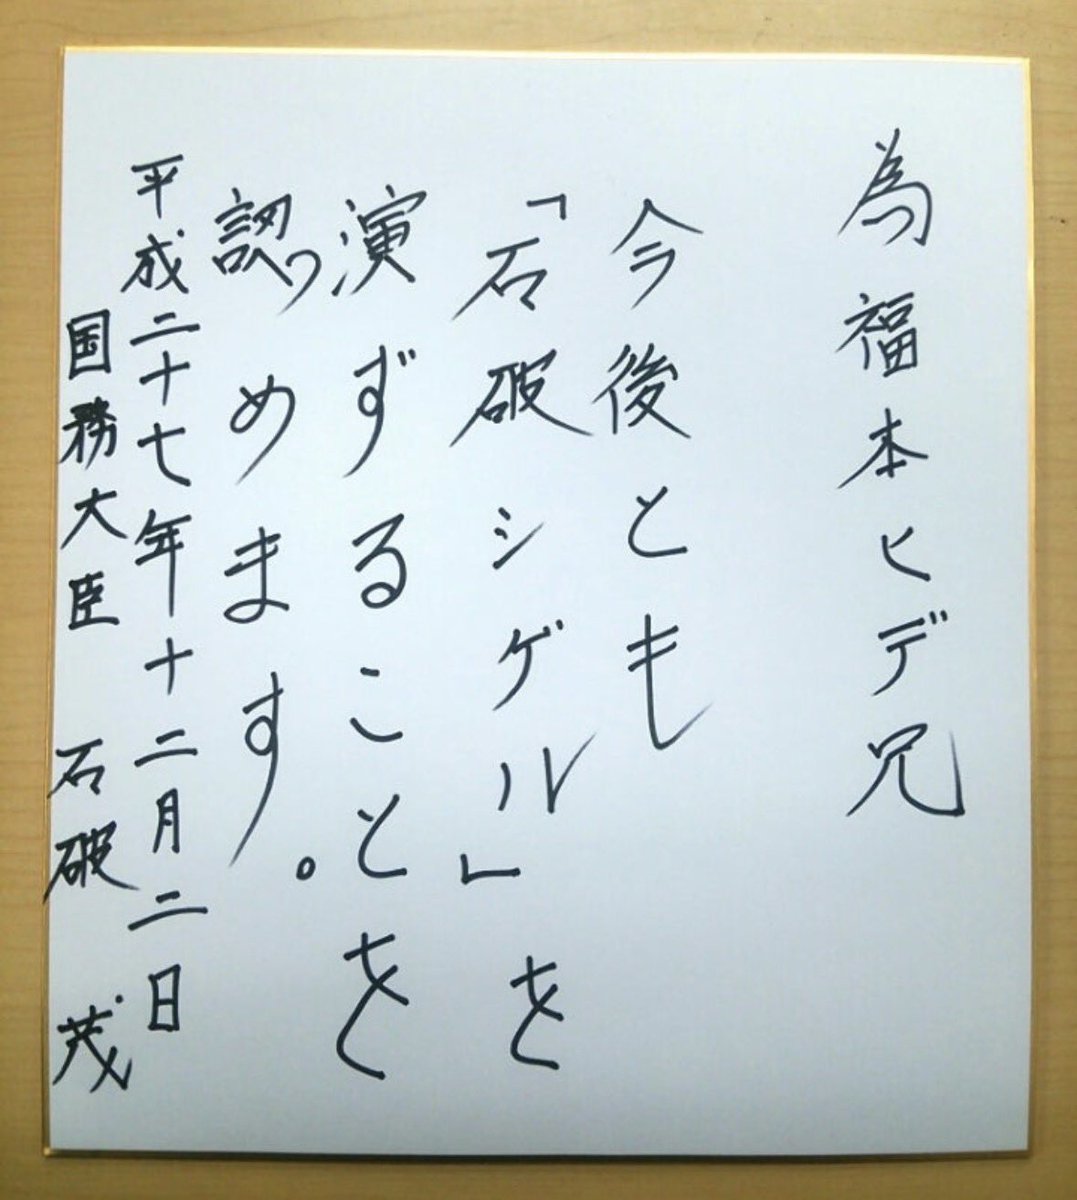 為 福本ヒデ兄
今後とも
「石破シゲル」を
演ずることを
認めます。
平成二十七年十二月二日
国務大臣 石破 茂